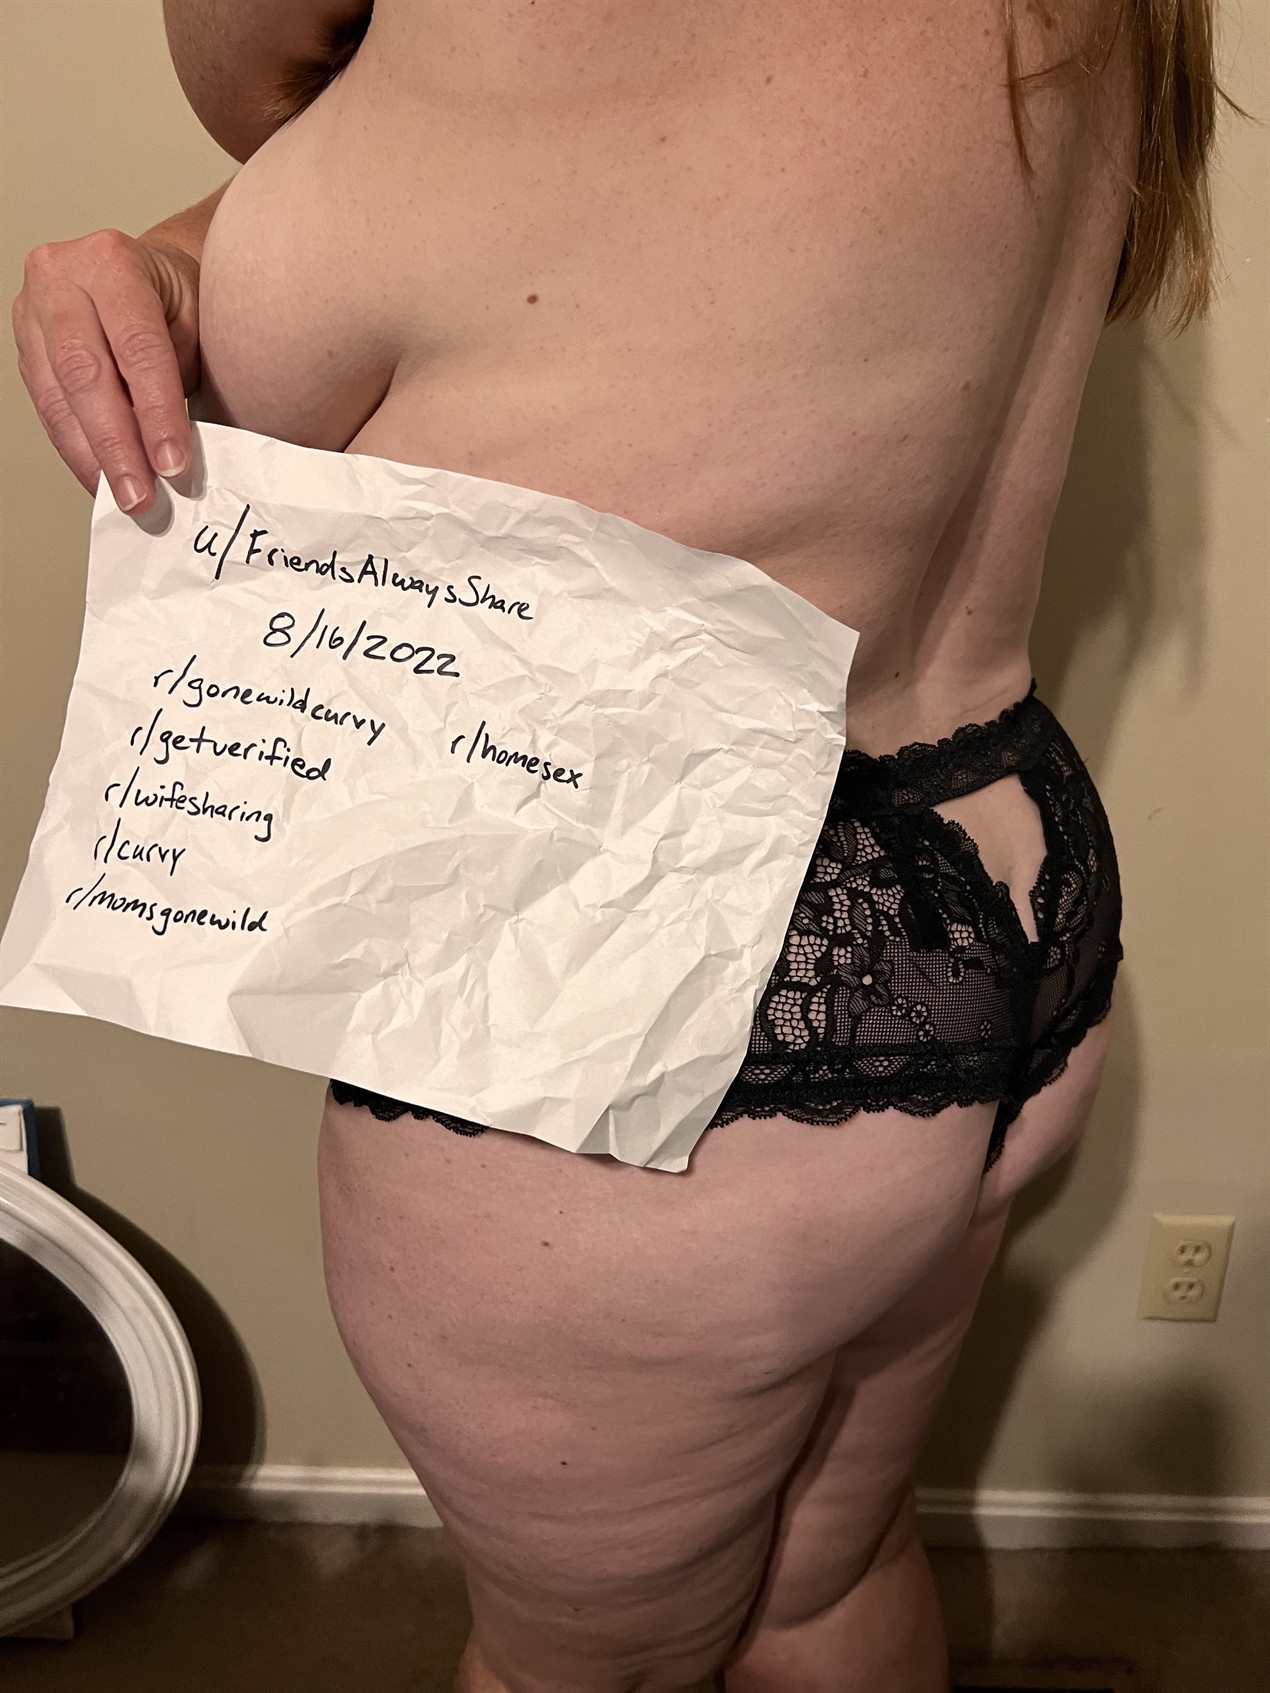 u/FriendsAlwaysShare
8/16/2022
r/gonewildcurvy
r/getverified
r/homesex
r/wifesharing
r/curvy
r/momsgonewild